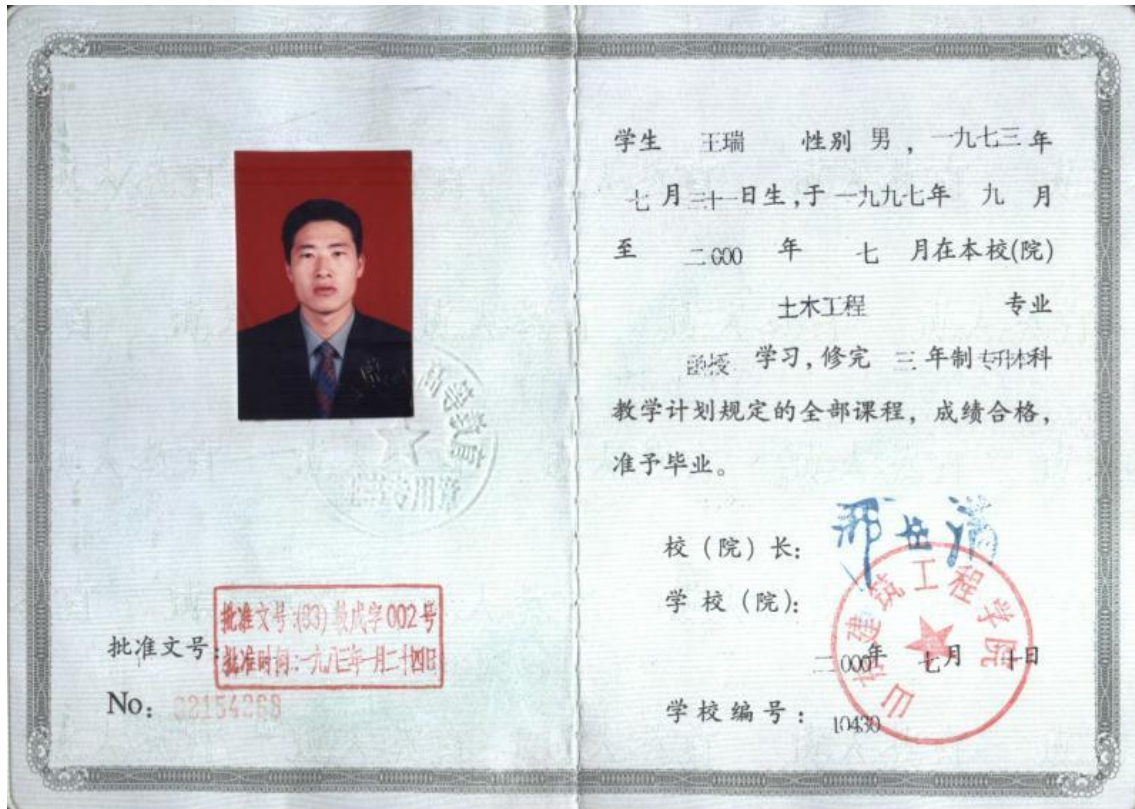 批准文号:
批准文号:(83)教成字002号
批准时间:一九八三年一月二十四日
No: 02154268
学生 王瑞 性别 男 , 一九七三年
七月三十一日生,于一九九七年 九 月
至 二000 年 七 月在本校(院)
土木工程 专业
函授 学习,修完 三 年制专升本科
教学计划规定的全部课程, 成绩合格,
准予毕业。
校(院)长:
学校(院):
山东建筑工程学院
二000年 七月 十日
学校编号: 10430